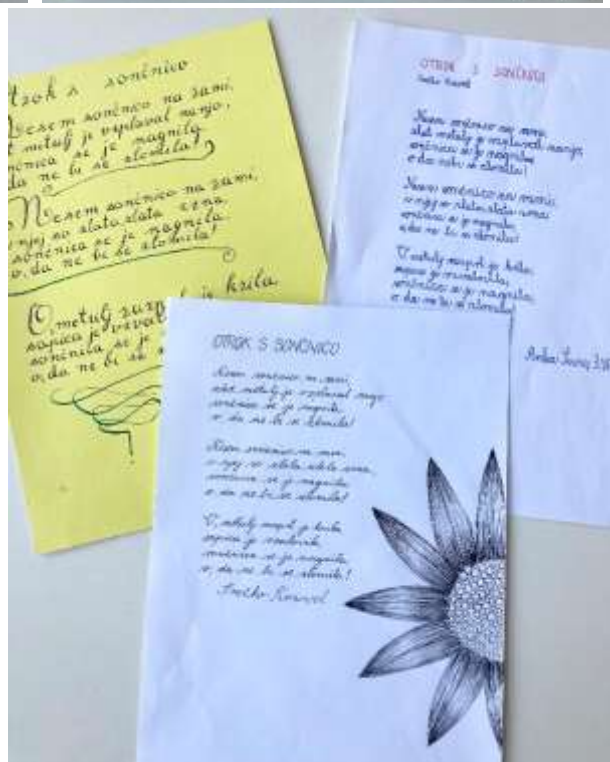 Otrok s sončnico
Nesem sončnico na rami,
metulj je vzplaval nanjo,
sončnica se je nagnila,
o, da ne bi se zlomila!
Nesem sončnico na rami,
v njej so zlata, zlata zrna
sončnica se je nagnila
o, da ne bi se zlomila!
O, metulj razprl je krila
sapica je
sončnica se je
o, da ne bi se
OTROK S SONČNICO
Srečko Kosovel
Nesem sončnico na rami,
zlat metulj je vzplaval nanjo,
sončnica se je nagnila
o da ne bi se zlomila!
Nesem sončnico na rami,
v njej so zlata, zlata zrna
sončnica se je nagnila
o da ne bi se zlomila!
O metulj razprl je krila,
sapica je
sončnica se je nagnila,
o da ne bi se zlomila!
OTROK S SONČNICO
Nesem sončnico na rami,
zlat metulj je vzplaval nanjo
sončnica se je nagnila
o, da ne bi se zlomila!
Nesem sončnico na rami
v njej so zlata, zlata zrna,
sončnica se je nagnila
o, da ne bi se zlomila!
O, metulj razprl je krila
sapica je
sončnica se je nagnila
o, da ne bi se zlomila!
Srečko Kosovel